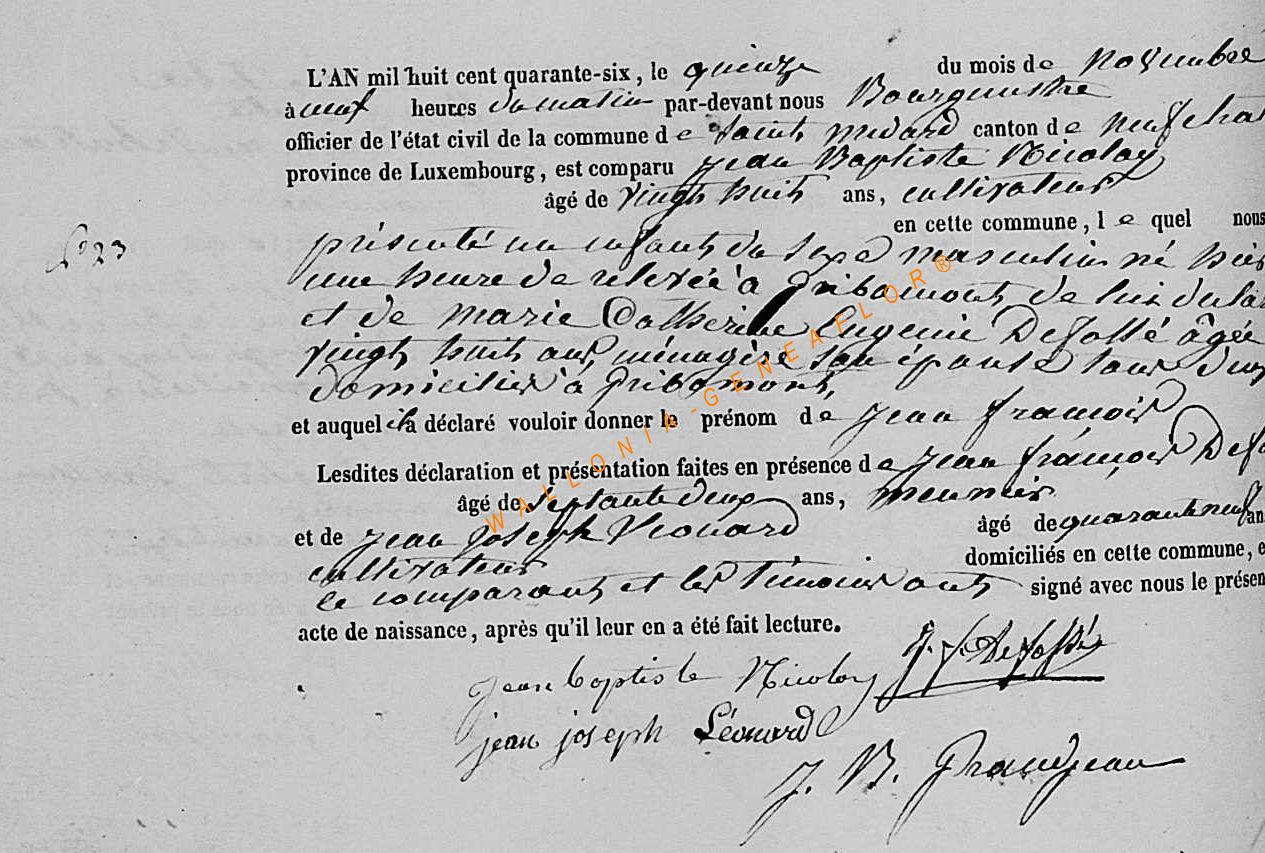 L'AN mil huit cent quarante-six, le quinze du mois de novembre
à neuf heures du matin par-devant nous Bourguestre
officier de l'état civil de la commune de Saint medard canton de neufchat
province de Luxembourg, est comparu Jean Baptiste Nicolay
âgé de vingt huit ans, cultivateur
en cette commune, le quel nous
N° 23
présenté un enfant du sexe masculin né hier
une heure de relevée à Gribomont de lui
et de marie Catherine Eugenie Defossé âgée
vingt huit ans, ménagère son épouse tous deux
domiciliés à Gribomont,
et auquel il a déclaré vouloir donner le prénom de jean francois
Lesdites déclaration et présentation faites en présence de jean françois Defo
âgé de septante deux ans, meunier
et de jean joseph Leonard âgé de quarante neuf an
cultivateur domiciliés en cette commune, e
le comparant et les témoins ont signé avec nous le présen
acte de naissance, après qu'il leur en a été fait lecture.
jean baptiste Nicolay J. f. Defossé
jean joseph Léonard
J. B. Grandjean
WALLONIA-GENEAFLOR®